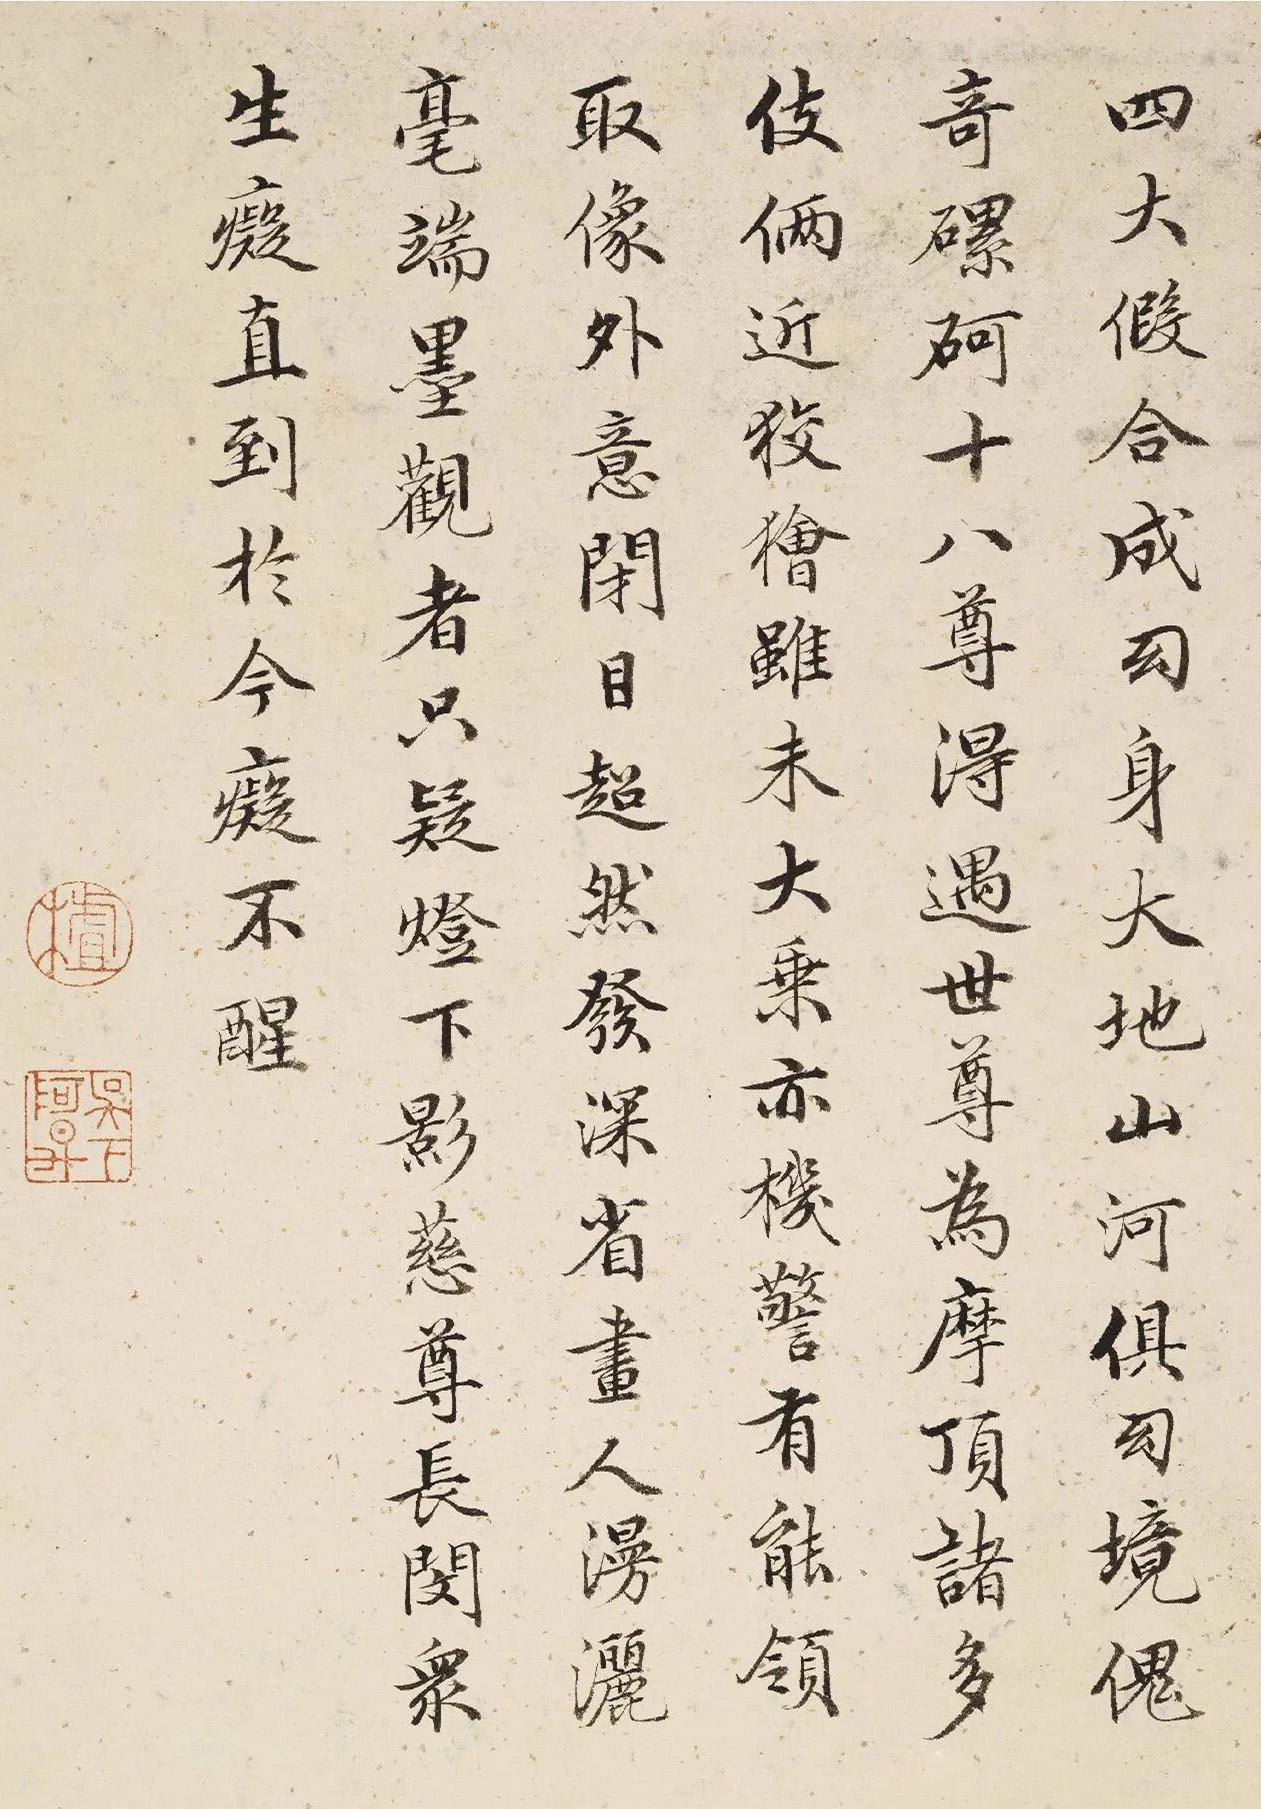 四大假合成幻身大地山河俱幻境傀
奇磥砢十八尊得遇世尊為摩頂諸多
伎倆近狡獪雖未大乗亦機警有能領
取像外意閉目超然發深省畫人漫灑
毫端墨觀者只疑燈下影慈尊長閔衆
生癡直到於今癡不醒